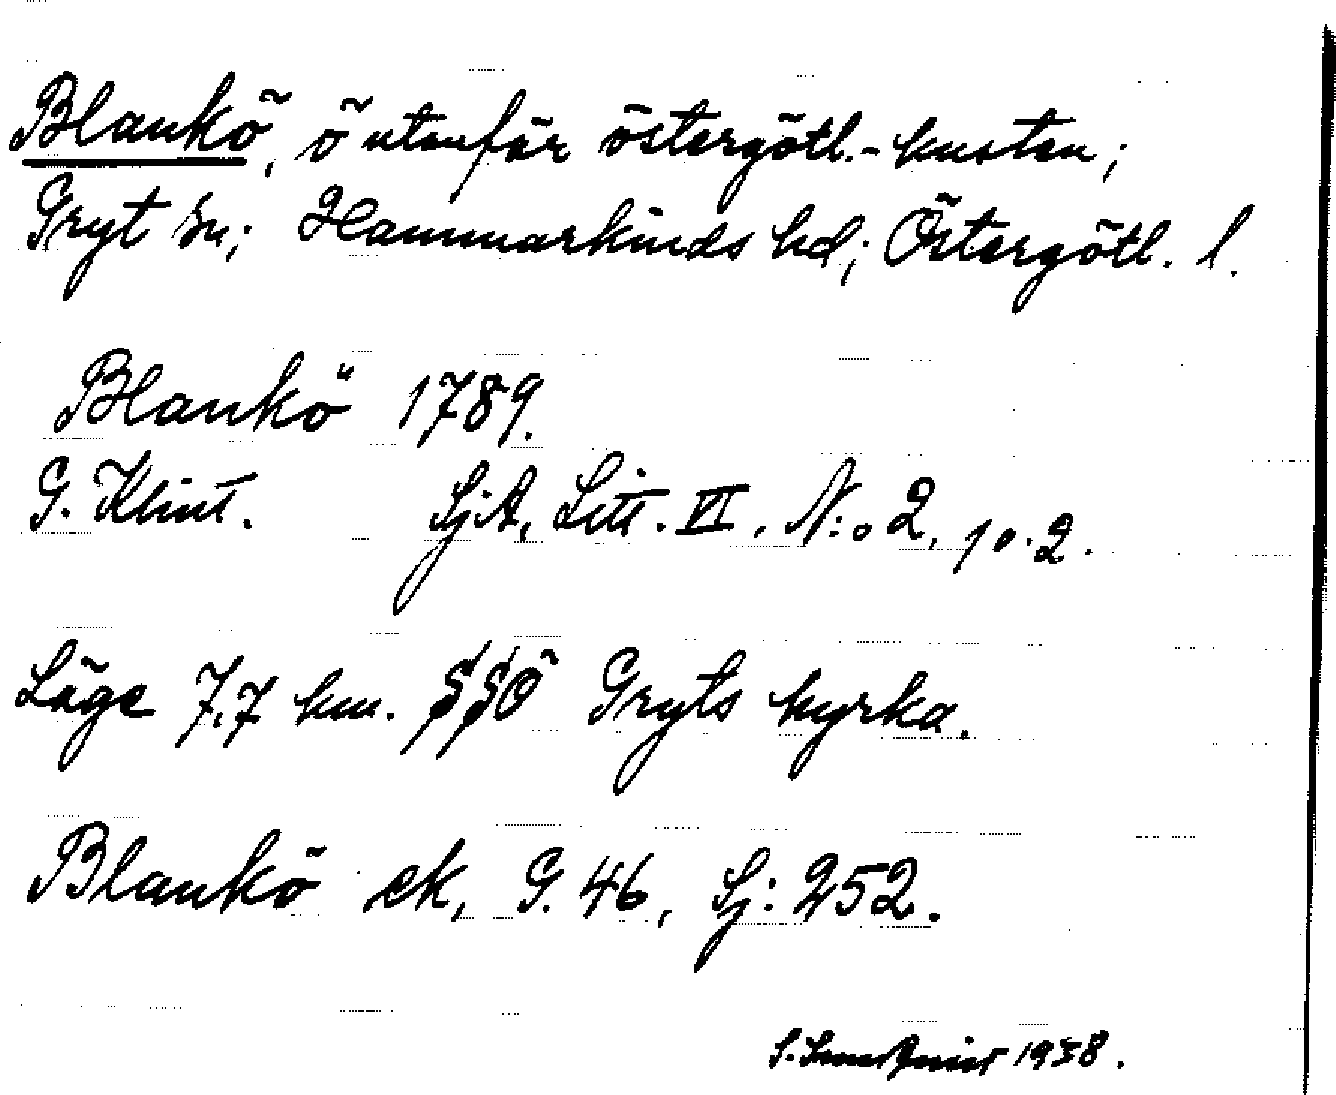 Blankö, ö utanför östergötl.-kusten;
Gryt sn; Hammarkinds hd; Östergötl. l.
Blankö 1789.
G. Klint. SjA, Litt. VI, N:o 2, 10.2.
Läge 7,7 km. SSÖ Gryts kyrka.
Blankö ek, G. 46, Sj: 252.
S. 1938.